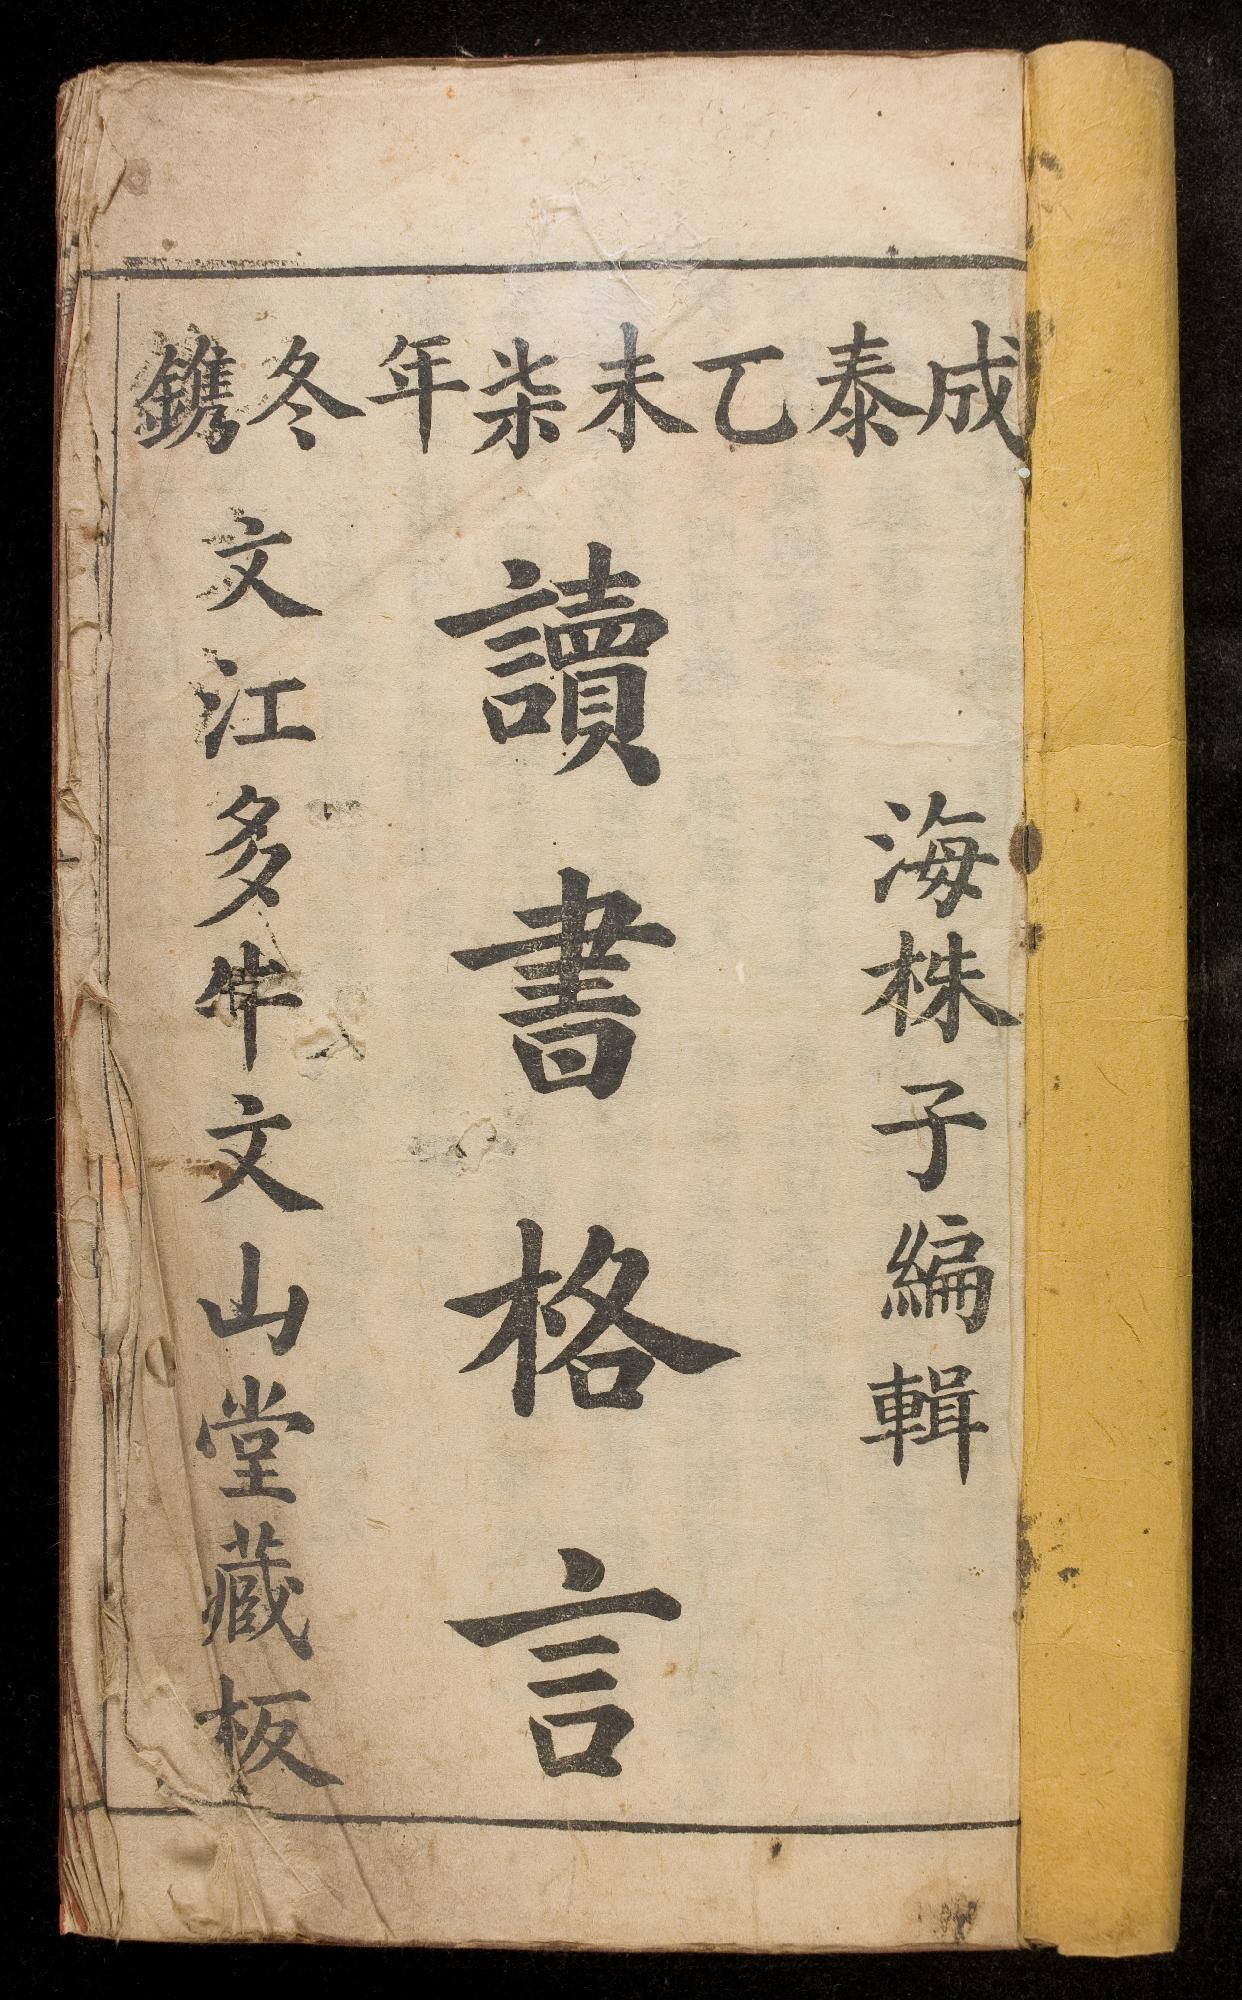 成泰乙未柒年冬鐫
海株子編輯
讀書格言
文江多牛文山堂藏板